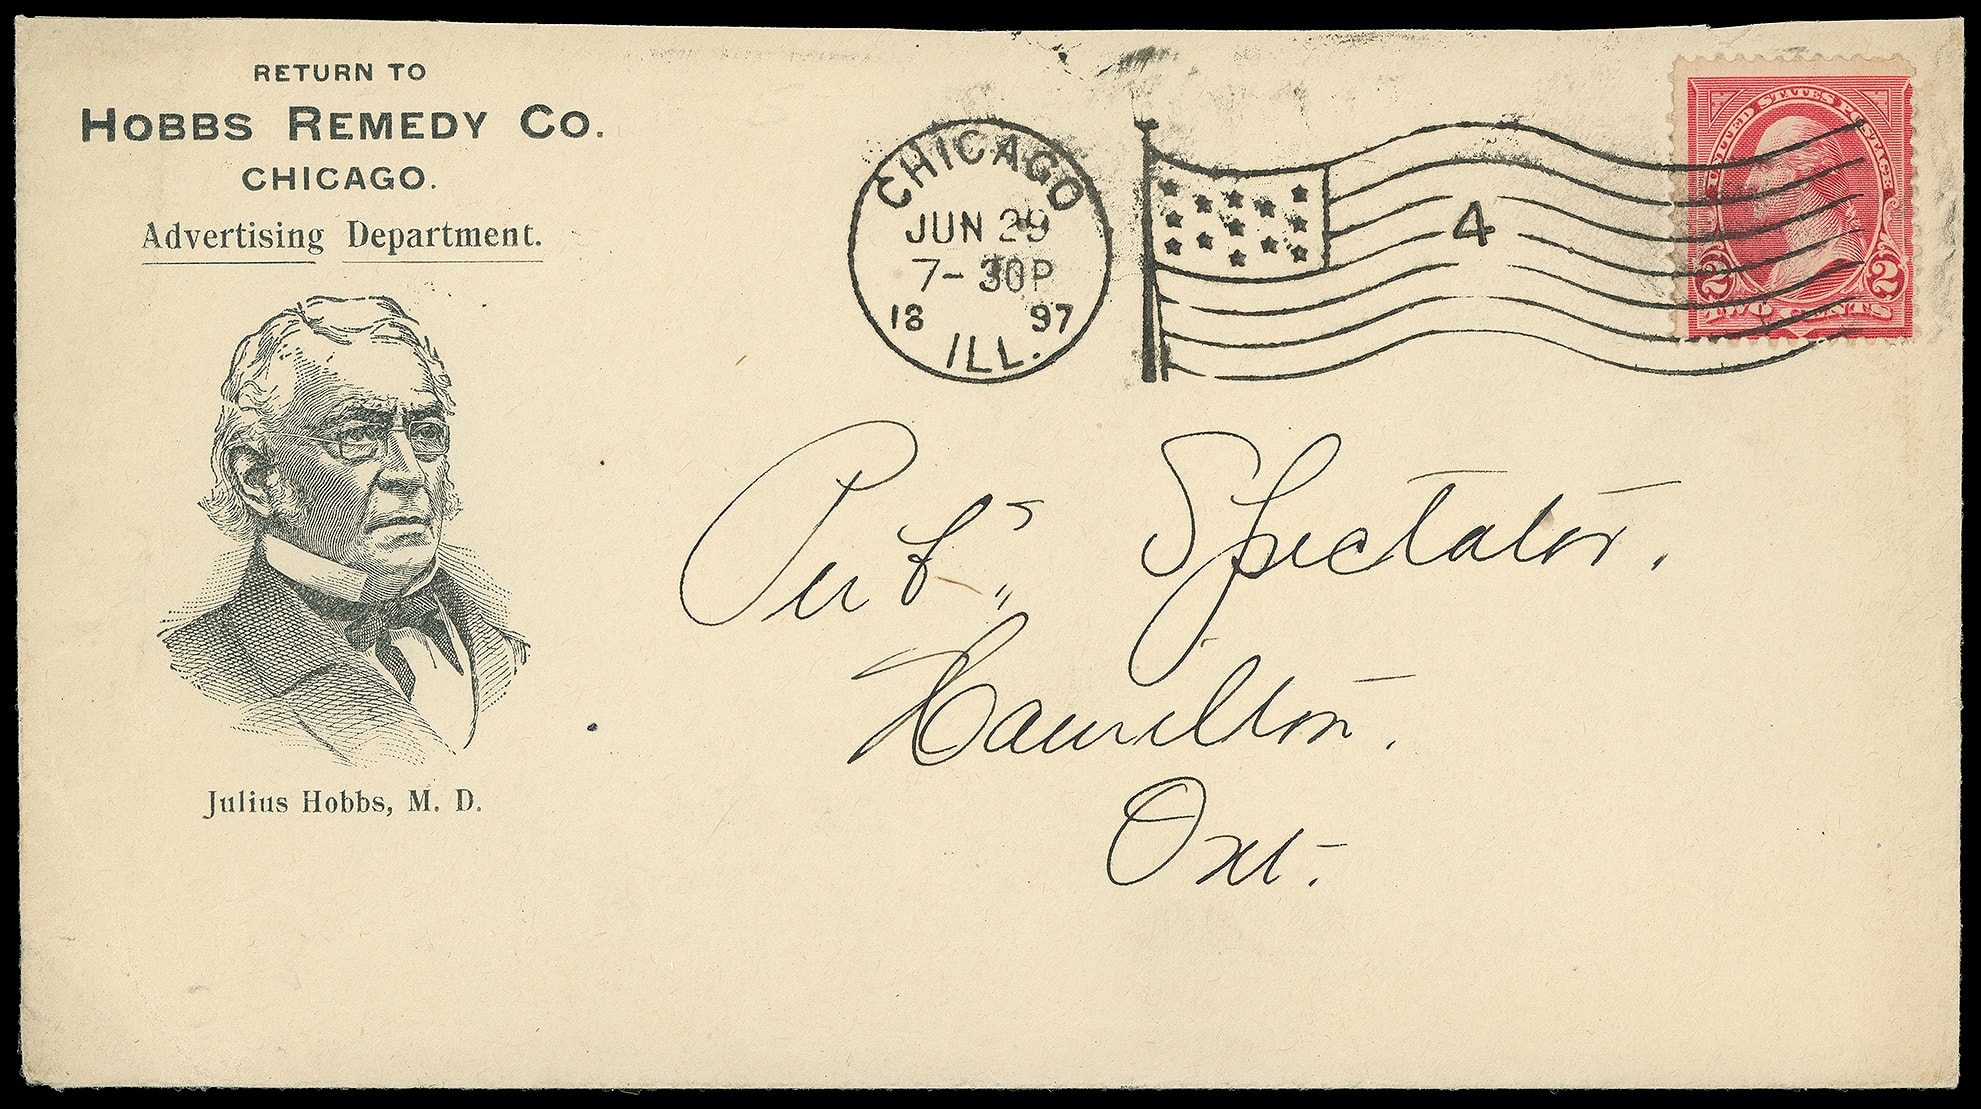 RETURN TO
HOBBS REMEDY CO.
CHICAGO.
Advertising Department.
Julius Hobbs, M. D.
CHICAGO
JUN 29
7-30P
18 97
ILL.
4
UNITED STATES POSTAGE
2 2
TWO CENTS
Pubs, Spectator.
Hamilton.
Ont.